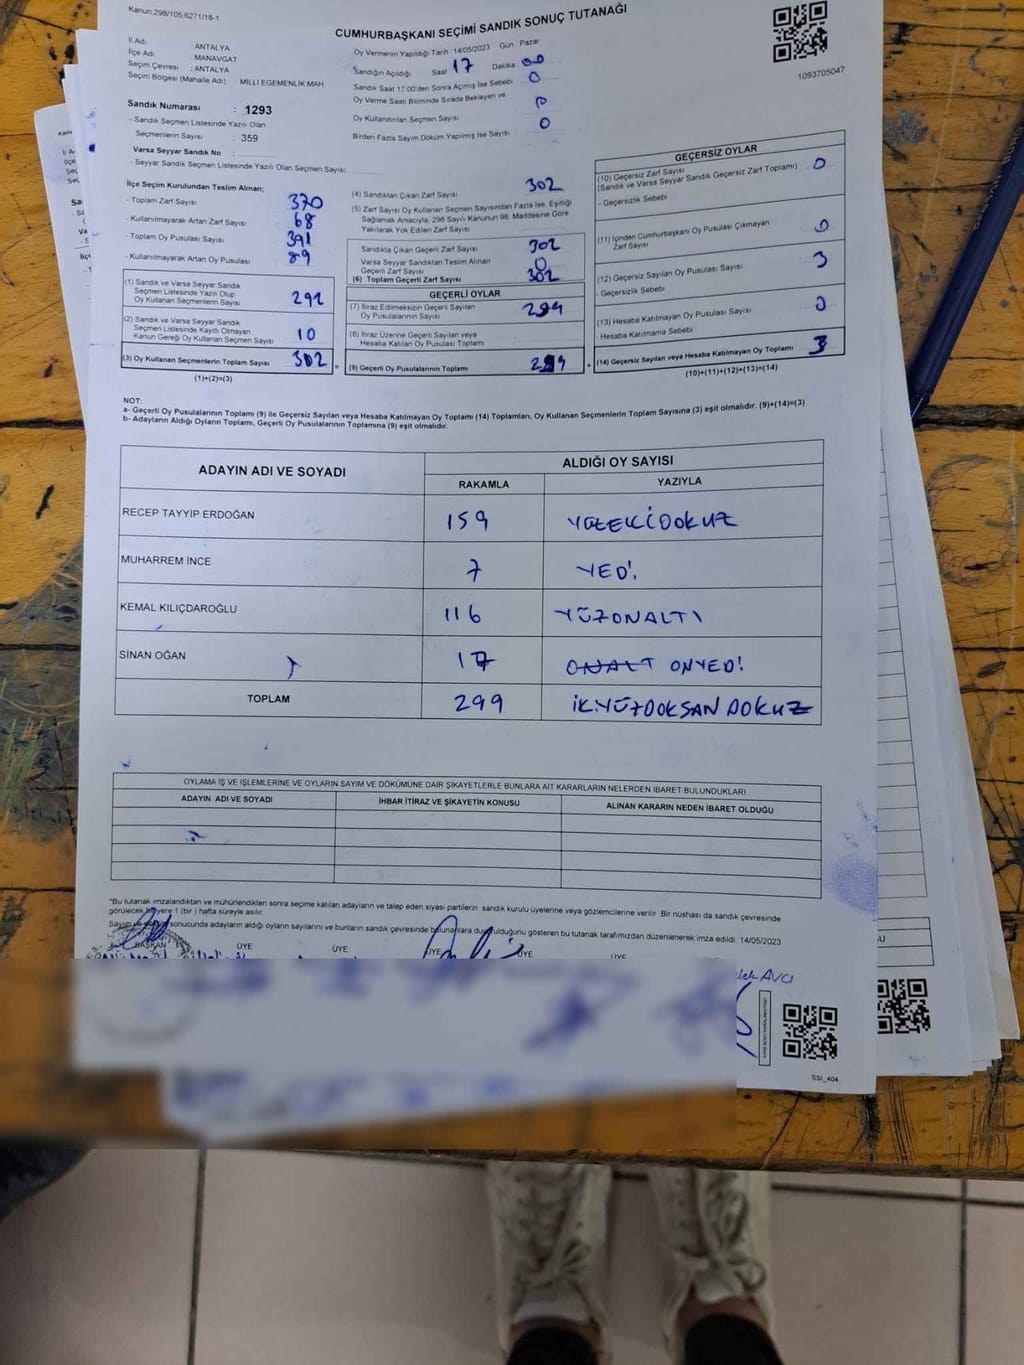 Kanun.298/105,6271/18-1
CUMHURBAŞKANI SEÇİMİ SANDIK SONUÇ TUTANAĞI
İl Adı : ANTALYA
İlçe Adı : MANAVGAT
Seçim Çevresi : ANTALYA
Seçim Bölgesi (Mahalle Adı) : MİLLİ EGEMENLİK MAH
Sandık Numarası : 1293
- Sandık Seçmen Listesinde Yazılı Olan
Seçmenlerin Sayısı : 359
Varsa Seyyar Sandık No :
- Seyyar Sandık Seçmen Listesinde Yazılı Olan Seçmen Sayısı:
Oy Vermenin Yapıldığı Tarih : 14/05/2023 Gün : Pazar
Sandığın Açıldığı Saat 17 Dakika 00
Sandık Saat 17:00'den Sonra Açımış İse Sebebi 0
Oy Verme Saati Bitiminde Sırada Bekleyen ve
Oy Kullandırılan Seçmen Sayısı
Birden Fazla Sayım Döküm Yapılmış İse Sayısı 0
1093705047
İlçe Seçim Kurulundan Teslim Alınan;
- Toplam Zarf Sayısı 370
- Kullanılmayarak Artan Zarf Sayısı 68
- Toplam Oy Pusulası Sayısı 391
- Kullanılmayarak Artan Oy Pusulası 89
(1) Sandık ve Varsa Seyyar Sandık
Seçmen Listesinde Yazılı Olup
Oy Kullanan Seçmenlerin Sayısı 292
(2) Sandık ve Varsa Seyyar Sandık
Seçmen Listesinde Kayıtlı Olmayan
Kanun Gereği Oy Kullanan Seçmen Sayısı 10
(3) Oy Kullanan Seçmenlerin Toplam Sayısı 302
(1)+(2)=(3)
(4) Sandıktan Çıkan Zarf Sayısı 302
(5) Zarf Sayısı Oy Kullanan Seçmen Sayısından Fazla İse, Eşitliği
Sağlamak Amacıyla, 298 Sayılı Kanunun 98. Maddesine Göre
Yakılarak Yok Edilen Zarf Sayısı
Sandıkta Çıkan Geçerli Zarf Sayısı 302
Varsa Seyyar Sandıktan Teslim Alınan
Geçerli Zarf Sayısı 0
(6) Toplam Geçerli Zarf Sayısı 302
GEÇERLİ OYLAR
(7) İtiraz Edilmeksizin Geçerli Sayılan
Oy Pusulalarının Sayısı 299
(8) İtiraz Üzerine Geçerli Sayılan veya
Hesaba Katılan Oy Pusulası Toplamı
(9) Geçerli Oy Pusulalarının Toplamı 299
GEÇERSİZ OYLAR
(10) Geçersiz Zarf Sayısı 0
(Sandık ve Varsa Seyyar Sandık Geçersiz Zarf Toplamı)
- Geçersizlik Sebebi
(11) İçinden Cumhurbaşkanı Oy Pusulası Çıkmayan
Zarf Sayısı 0
(12) Geçersiz Sayılan Oy Pusulası Sayısı 3
- Geçersizlik Sebebi
(13) Hesaba Katılmayan Oy Pusulası Sayısı 0
- Hesaba Katılmama Sebebi
(14) Geçersiz Sayılan veya Hesaba Katılmayan Oy Toplamı 3
(10)+(11)+(12)+(13)=(14)
NOT:
a- Geçerli Oy Pusulalarının Toplamı (9) ile Geçersiz Sayılan veya Hesaba Katılmayan Oy Toplamı (14) Toplamları, Oy Kullanan Seçmenlerin Toplam Sayısına (3) eşit olmalıdır. (9)+(14)=(3)
b- Adayların Aldığı Oyların Toplamı, Geçerli Oy Pusulalarının Toplamına (9) eşit olmalıdır.
ADAYIN ADI VE SOYADI
ALDIĞI OY SAYISI
RAKAMLA YAZIYLA
RECEP TAYYİP ERDOĞAN 159 YÜZELLİDOKUZ
MUHARREM İNCE 7 YEDİ
KEMAL KILIÇDAROĞLU 116 YÜZONALTI
SİNAN OĞAN 17 ONALT ONYEDİ
TOPLAM 299 İKİYÜZDOKSAN DOKUZ
OYLAMA İŞ VE İŞLEMLERİNE VE OYLARIN SAYIM VE DÖKÜMÜNE DAİR ŞİKAYETLERLE BUNLARA AİT KARARLARIN NELERDEN İBARET BULUNDUKLARI
ADAYIN ADI VE SOYADI İHBAR İTİRAZ VE ŞİKAYETİN KONUSU ALINAN KARARIN NEDEN İBARET OLDUĞU
*Bu tutanak imzalandıktan ve mühürlendikten sonra seçime katılan adayların ve talep eden siyasi partilerin sandık kurulu üyelerine veya gözlemcilerine verilir. Bir nüshası da sandık çevresinde
görülecek bir yere 1 (bir ) hafta süreyle asılır.
Sayım ve sonucunda adayların aldığı oyların sayılarını ve bunların sandık çevresinde bulunanlara duyulduğunu gösteren bu tutanak tarafımızdan düzenlenerek imza edildi. 14/05/2023
BAŞKAN ÜYE ÜYE ÜYE ÜYE ÜYE
AVCI
SSİ_404